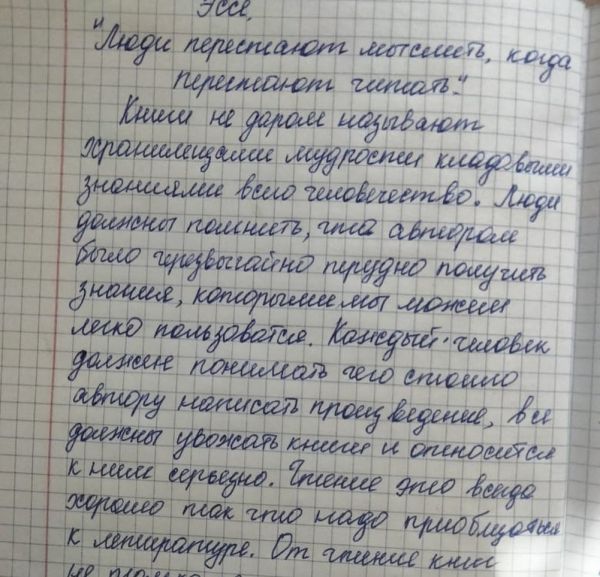 Эссе.
"Люди перестают мыслить, когда
перестают читать."
Книги не даром называют
хранилищами мудрости кладовыми
знаниями всего человечество. Люди
должны помнить, что авторам
было черезвычайно трудно получить
знания, которыми мы можем
легко пользоватся. Каждый человек
должен понимать чего стоило
автору написать произведение, все
должны увожать книги и относится
к ним серьезно. Чтение это всегда
хорошо так что надо приобщаться
к летиратуре. От чтение книг
не только